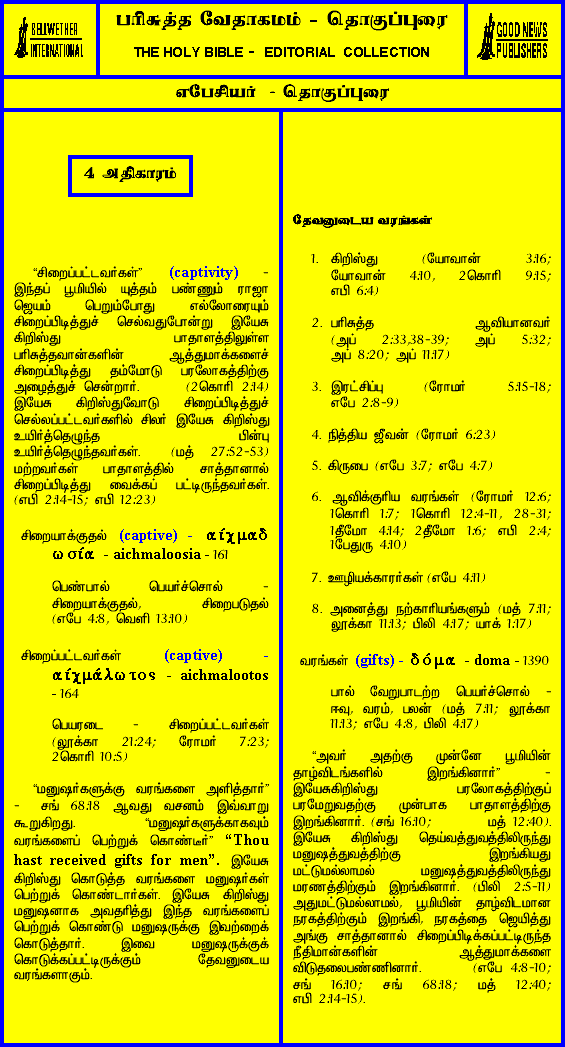 BELLWETHER
INTERNATIONAL
பரிசுத்த வேதாகமம் - தொகுப்புரை
THE HOLY BIBLE - EDITORIAL COLLECTION
GOOD NEWS
PUBLISHERS
எபேசியர் - தொகுப்புரை
4 அதிகாரம்
“சிறைப்பட்டவர்கள்” (captivity) -
இந்தப் பூமியில் யுத்தம் பண்ணும் ராஜா
ஜெயம் பெறும்போது எல்லோரையும்
சிறைப்பிடித்துச் செல்வதுபோன்று இயேசு
கிறிஸ்து பாதாளத்திலுள்ள
பரிசுத்தவான்களின் ஆத்துமாக்களைச்
சிறைப்பிடித்து தம்மோடு பரலோகத்திற்கு
அழைத்துச் சென்றார். (2கொரி 2:14)
இயேசு கிறிஸ்துவோடு சிறைப்பிடித்துச்
செல்லப்பட்டவர்களில் சிலர் இயேசு கிறிஸ்து
உயிர்த்தெழுந்த பின்பு
உயிர்த்தெழுந்தவர்கள். (மத் 27:52-53)
மற்றவர்கள் பாதாளத்தில் சாத்தானால்
சிறைப்பிடித்து வைக்கப் பட்டிருந்தவர்கள்.
(எபி 2:14-15; எபி 12:23)
சிறையாக்குதல் (captive) - αίχμαδ
ωσία - aichmaloosia - 161
பெண்பால் பெயர்ச்சொல் -
சிறையாக்குதல், சிறைபடுதல்
(எபே 4:8, வெளி 13:10)
சிறைப்பட்டவர்கள் (captive) -
αίχμάλωτος - aichmalootos
- 164
பெயரடை - சிறைப்பட்டவர்கள்
(லூக்கா 21:24; ரோமர் 7:23;
2கொரி 10:5)
“மனுஷர்களுக்கு வரங்களை அளித்தார்”
- சங் 68:18 ஆவது வசனம் இவ்வாறு
கூறுகிறது. “மனுஷர்களுக்காகவும்
வரங்களைப் பெற்றுக் கொண்டீர்” “Thou
hast received gifts for men”. இயேசு
கிறிஸ்து கொடுத்த வரங்களை மனுஷர்கள்
பெற்றுக் கொண்டார்கள். இயேசு கிறிஸ்து
மனுஷனாக அவதரித்து இந்த வரங்களைப்
பெற்றுக் கொண்டு மனுஷருக்கு இவற்றைக்
கொடுத்தார். இவை மனுஷருக்குக்
கொடுக்கப்பட்டிருக்கும் தேவனுடைய
வரங்களாகும்.
தேவனுடைய வரங்கள்
1. கிறிஸ்து (யோவான் 3:16;
யோவான் 4:10, 2கொரி 9:15;
எபி 6:4)
2. பரிசுத்த ஆவியானவர்
(அப் 2:33,38-39; அப் 5:32;
அப் 8:20; அப் 11:17)
3. இரட்சிப்பு (ரோமர் 5:15-18;
எபே 2:8-9)
4. நித்திய ஜீவன் (ரோமர் 6:23)
5. கிருபை (எபே 3:7; எபே 4:7)
6. ஆவிக்குரிய வரங்கள் (ரோமர் 12:6;
1கொரி 1:7; 1கொரி 12:4-11, 28-31;
1தீமோ 4:14; 2தீமோ 1:6; எபி 2:4;
1பேதுரு 4:10)
7. ஊழியக்காரர்கள் (எபே 4:11)
8. அனைத்து நற்காரியங்களும் (மத் 7:11;
லூக்கா 11:13; பிலி 4:17; யாக் 1:17)
வரங்கள் (gifts) - δόμα - doma - 1390
பால் வேறுபாடற்ற பெயர்ச்சொல் -
ஈவு, வரம், பலன் (மத் 7:11; லூக்கா
11:13; எபே 4:8, பிலி 4:17)
“அவர் அதற்கு முன்னே பூமியின்
தாழ்விடங்களில் இறங்கினார்” -
இயேசுகிறிஸ்து பரலோகத்திற்குப்
பரமேறுவதற்கு முன்பாக பாதாளத்திற்கு
இறங்கினார். (சங் 16:10; மத் 12:40).
இயேசு கிறிஸ்து தெய்வத்துவத்திலிருந்து
மனுஷத்துவத்திற்கு இறங்கியது
மட்டுமல்லாமல் மனுஷத்துவத்திலிருந்து
மரணத்திற்கும் இறங்கினார். (பிலி 2:5-11)
அதுமட்டுமல்லாமல், பூமியின் தாழ்விடமான
நரகத்திற்கும் இறங்கி, நரகத்தை ஜெயித்து
அங்கு சாத்தானால் சிறைப்பிடிக்கப்பட்டிருந்த
நீதிமான்களின் ஆத்துமாக்களை
விடுதலைபண்ணினார். (எபே 4:8-10;
சங் 16:10; சங் 68:18; மத் 12:40;
எபி 2:14-15).